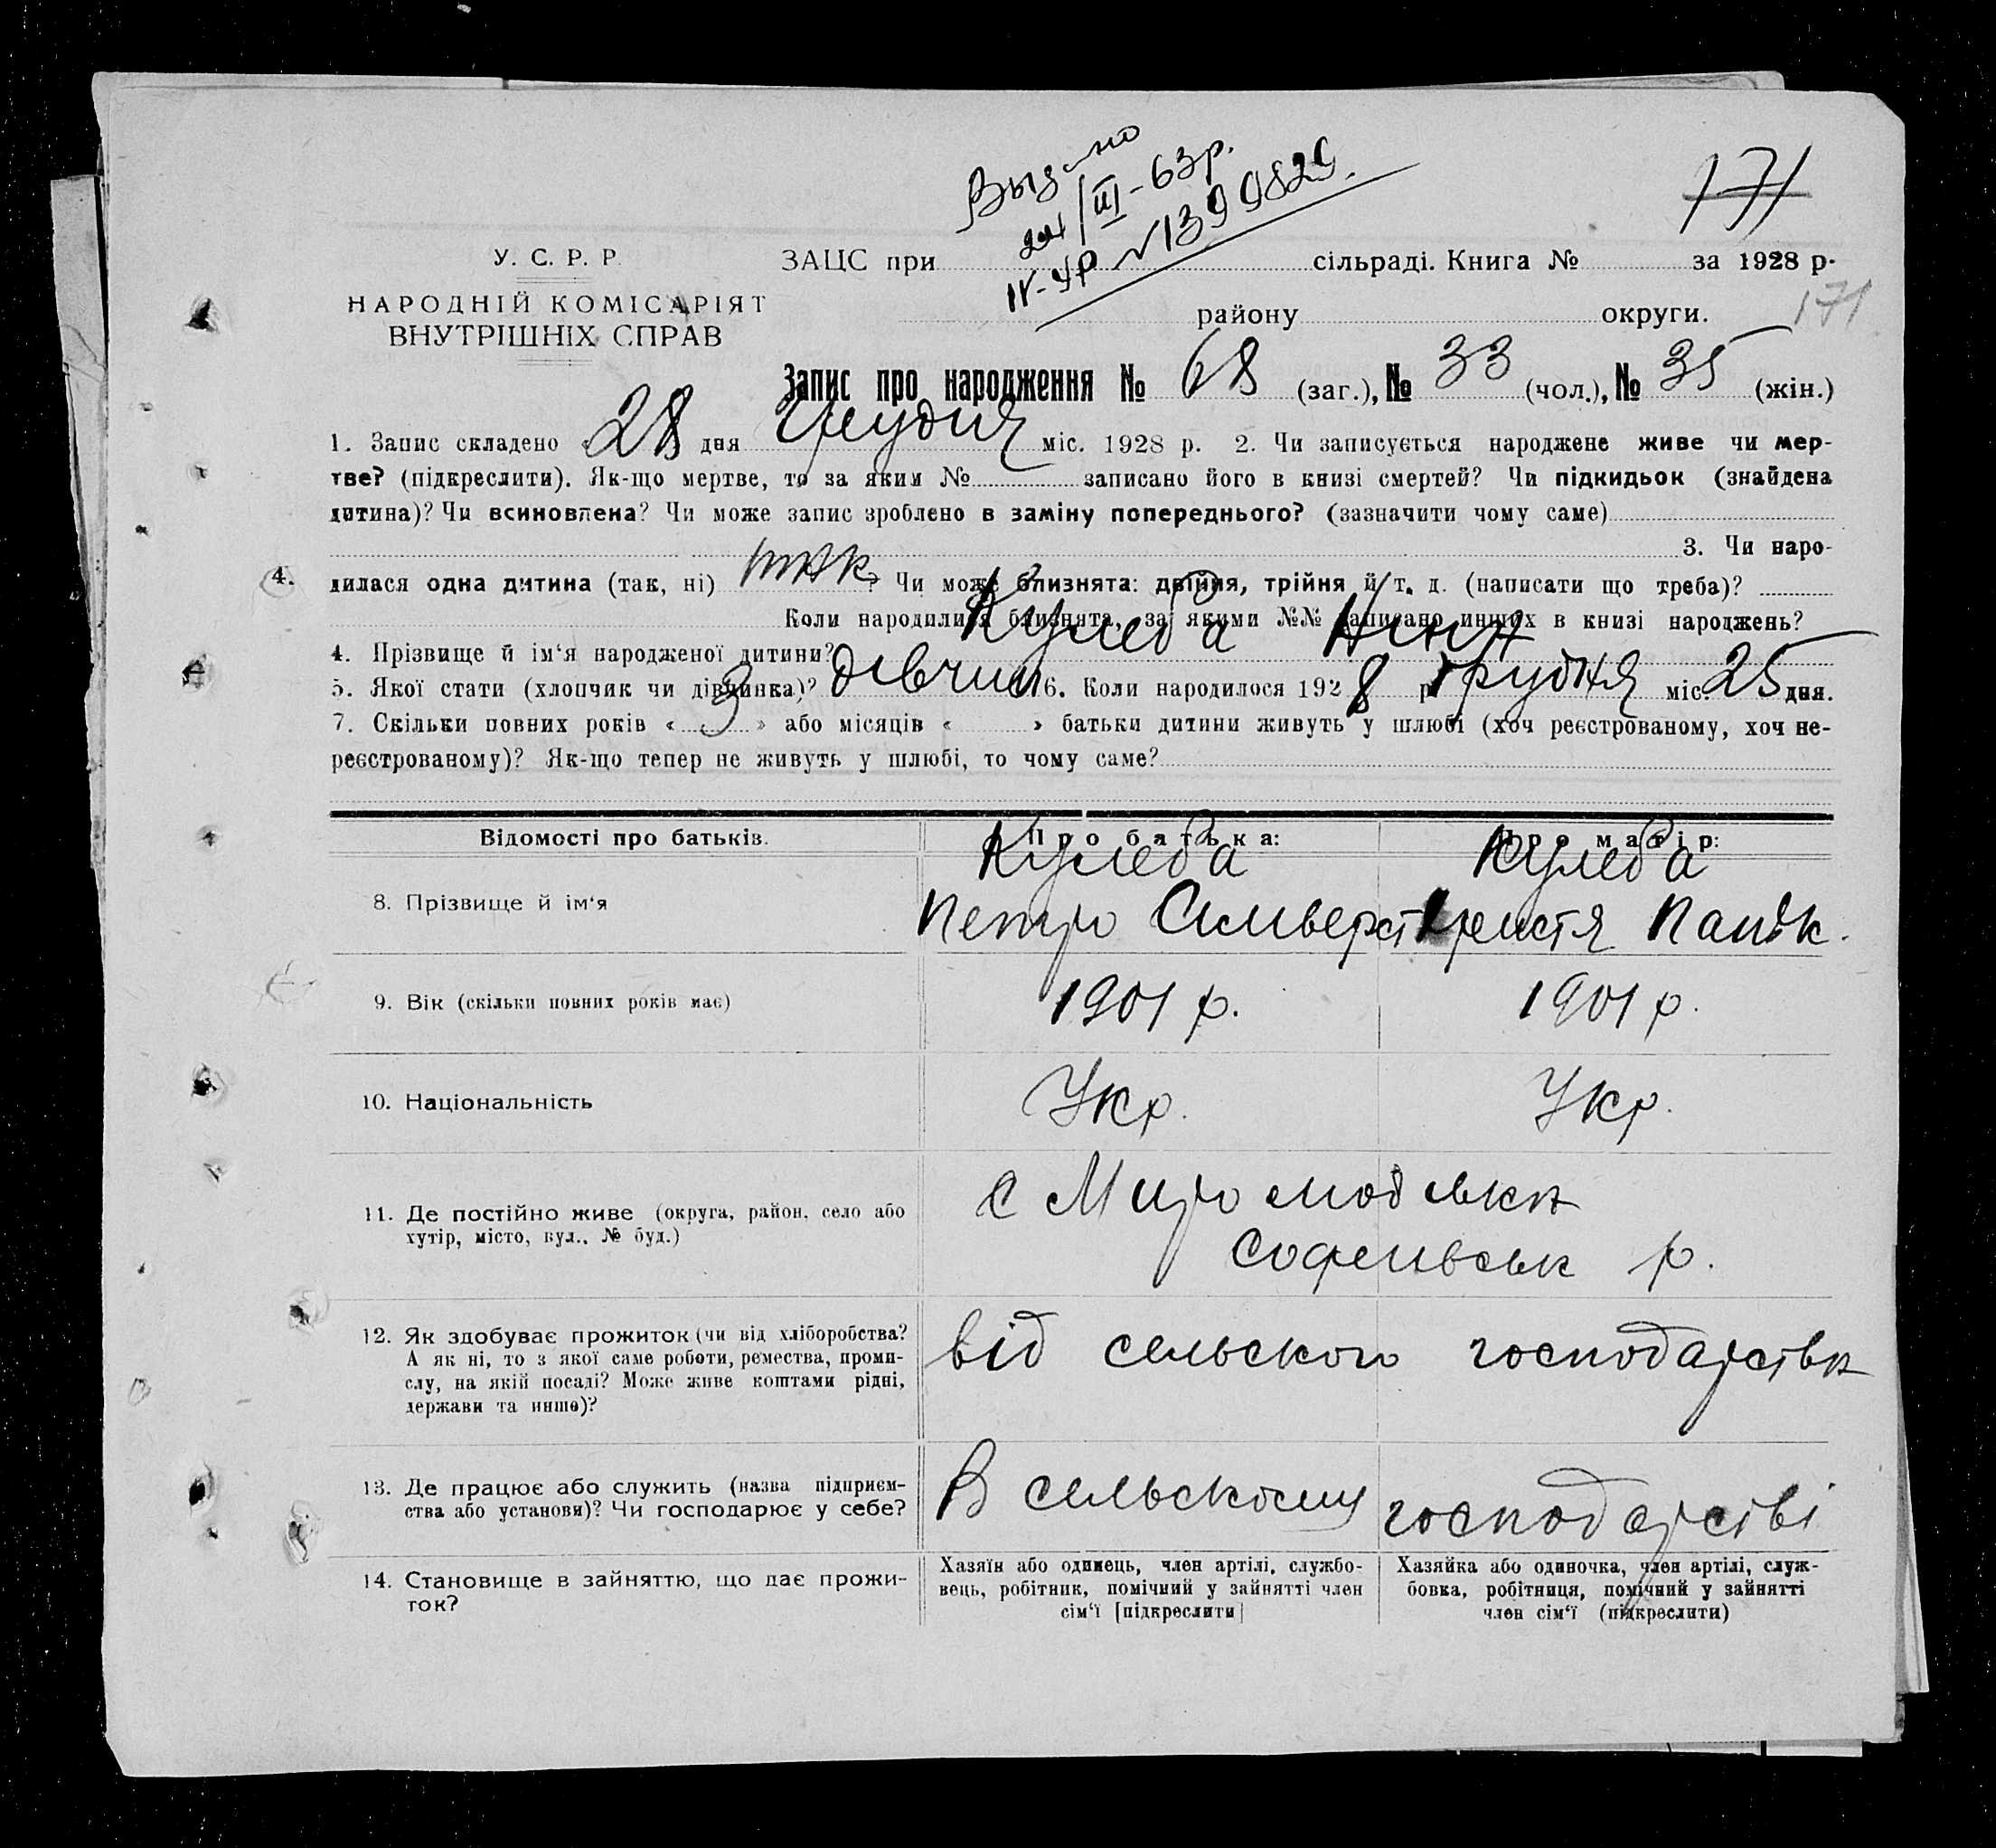 Выдано
171
24/III-63р.
IV-ЯР №1399829.
У. С. Р. Р.
НАРОДНІЙ КОМІСАРІЯТ
ВНУТРІШНІХ СПРАВ
ЗАЦС при сільраді. Книга № за 1928 р.
району округи.
171
Запис про народження № 68 (заг.), № 33 (чол.), № 35 (жін.)
1. Запис складено «28 дня Грудня міс. 1928 р. 2. Чи записується народжене живе чи мер-
тве? (підкреслити). Як-що мертве, то за яким № записано його в книзі смертей? Чи підкидьок (знайдена
дитина)? Чи всиновлена? Чи може запис зроблено в заміну попереднього? (зазначити чому саме)
3. Чи наро-
4.
дилася одна дитина (так, ні) так? Чи може близнята: двійня, трійня й т. д. (написати що треба)?
Коли народилися близнята, за якими №№ записано инших в книзі народжень?
4. Прізвище й ім‘я народженої дитини? Кулеба Нина
5. Якої стати (хлопчик чи дівчинка)? дівчин 6. Коли народилося 1928 р. Грудня міс. 25 дня.
7. Скільки повних років « 3 » або місяців « » батьки дитини живуть у шлюбі (хоч реєстрованому, хоч не-
реєстрованому)? Як-що тепер не живуть у шлюбі, то чому саме?
Відомості про батьків. Про батька: Про матір:
8. Прізвище й ім‘я
Кулеба Кулеба
Петро Сильверст Христя
9. Вік (скільки повних років має) 1901 р. 1901 р.
10. Національність Укр. Укр.
11. Де постійно живе (округа, район, село або
хутір, місто, вул., № буд.)
с Миролюбовка
Софеивськ р.
12. Як здобуває прожиток (чи від хліборобства?
А як ні, то з якої саме роботи, ремества, проми-
слу, на якій посаді? Може живе коштами рідні,
держави та инше)?
від сельского господарства
13. Де працює або служить (назва підприєм-
ства або установи)? Чи господарює у себе?
В сельскому господарстві
14. Становище в зайняттю, що дає прожи-
ток?
Хазяїн або одинець, член артілі, службо-
вець, робітник, помічний у зайнятті член
сім‘ї [підкреслити]
Хазяйка або одиночка, член артілі, служ-
бовка, робітниця, помічний у зайнятті
член сім‘ї (підкреслити)